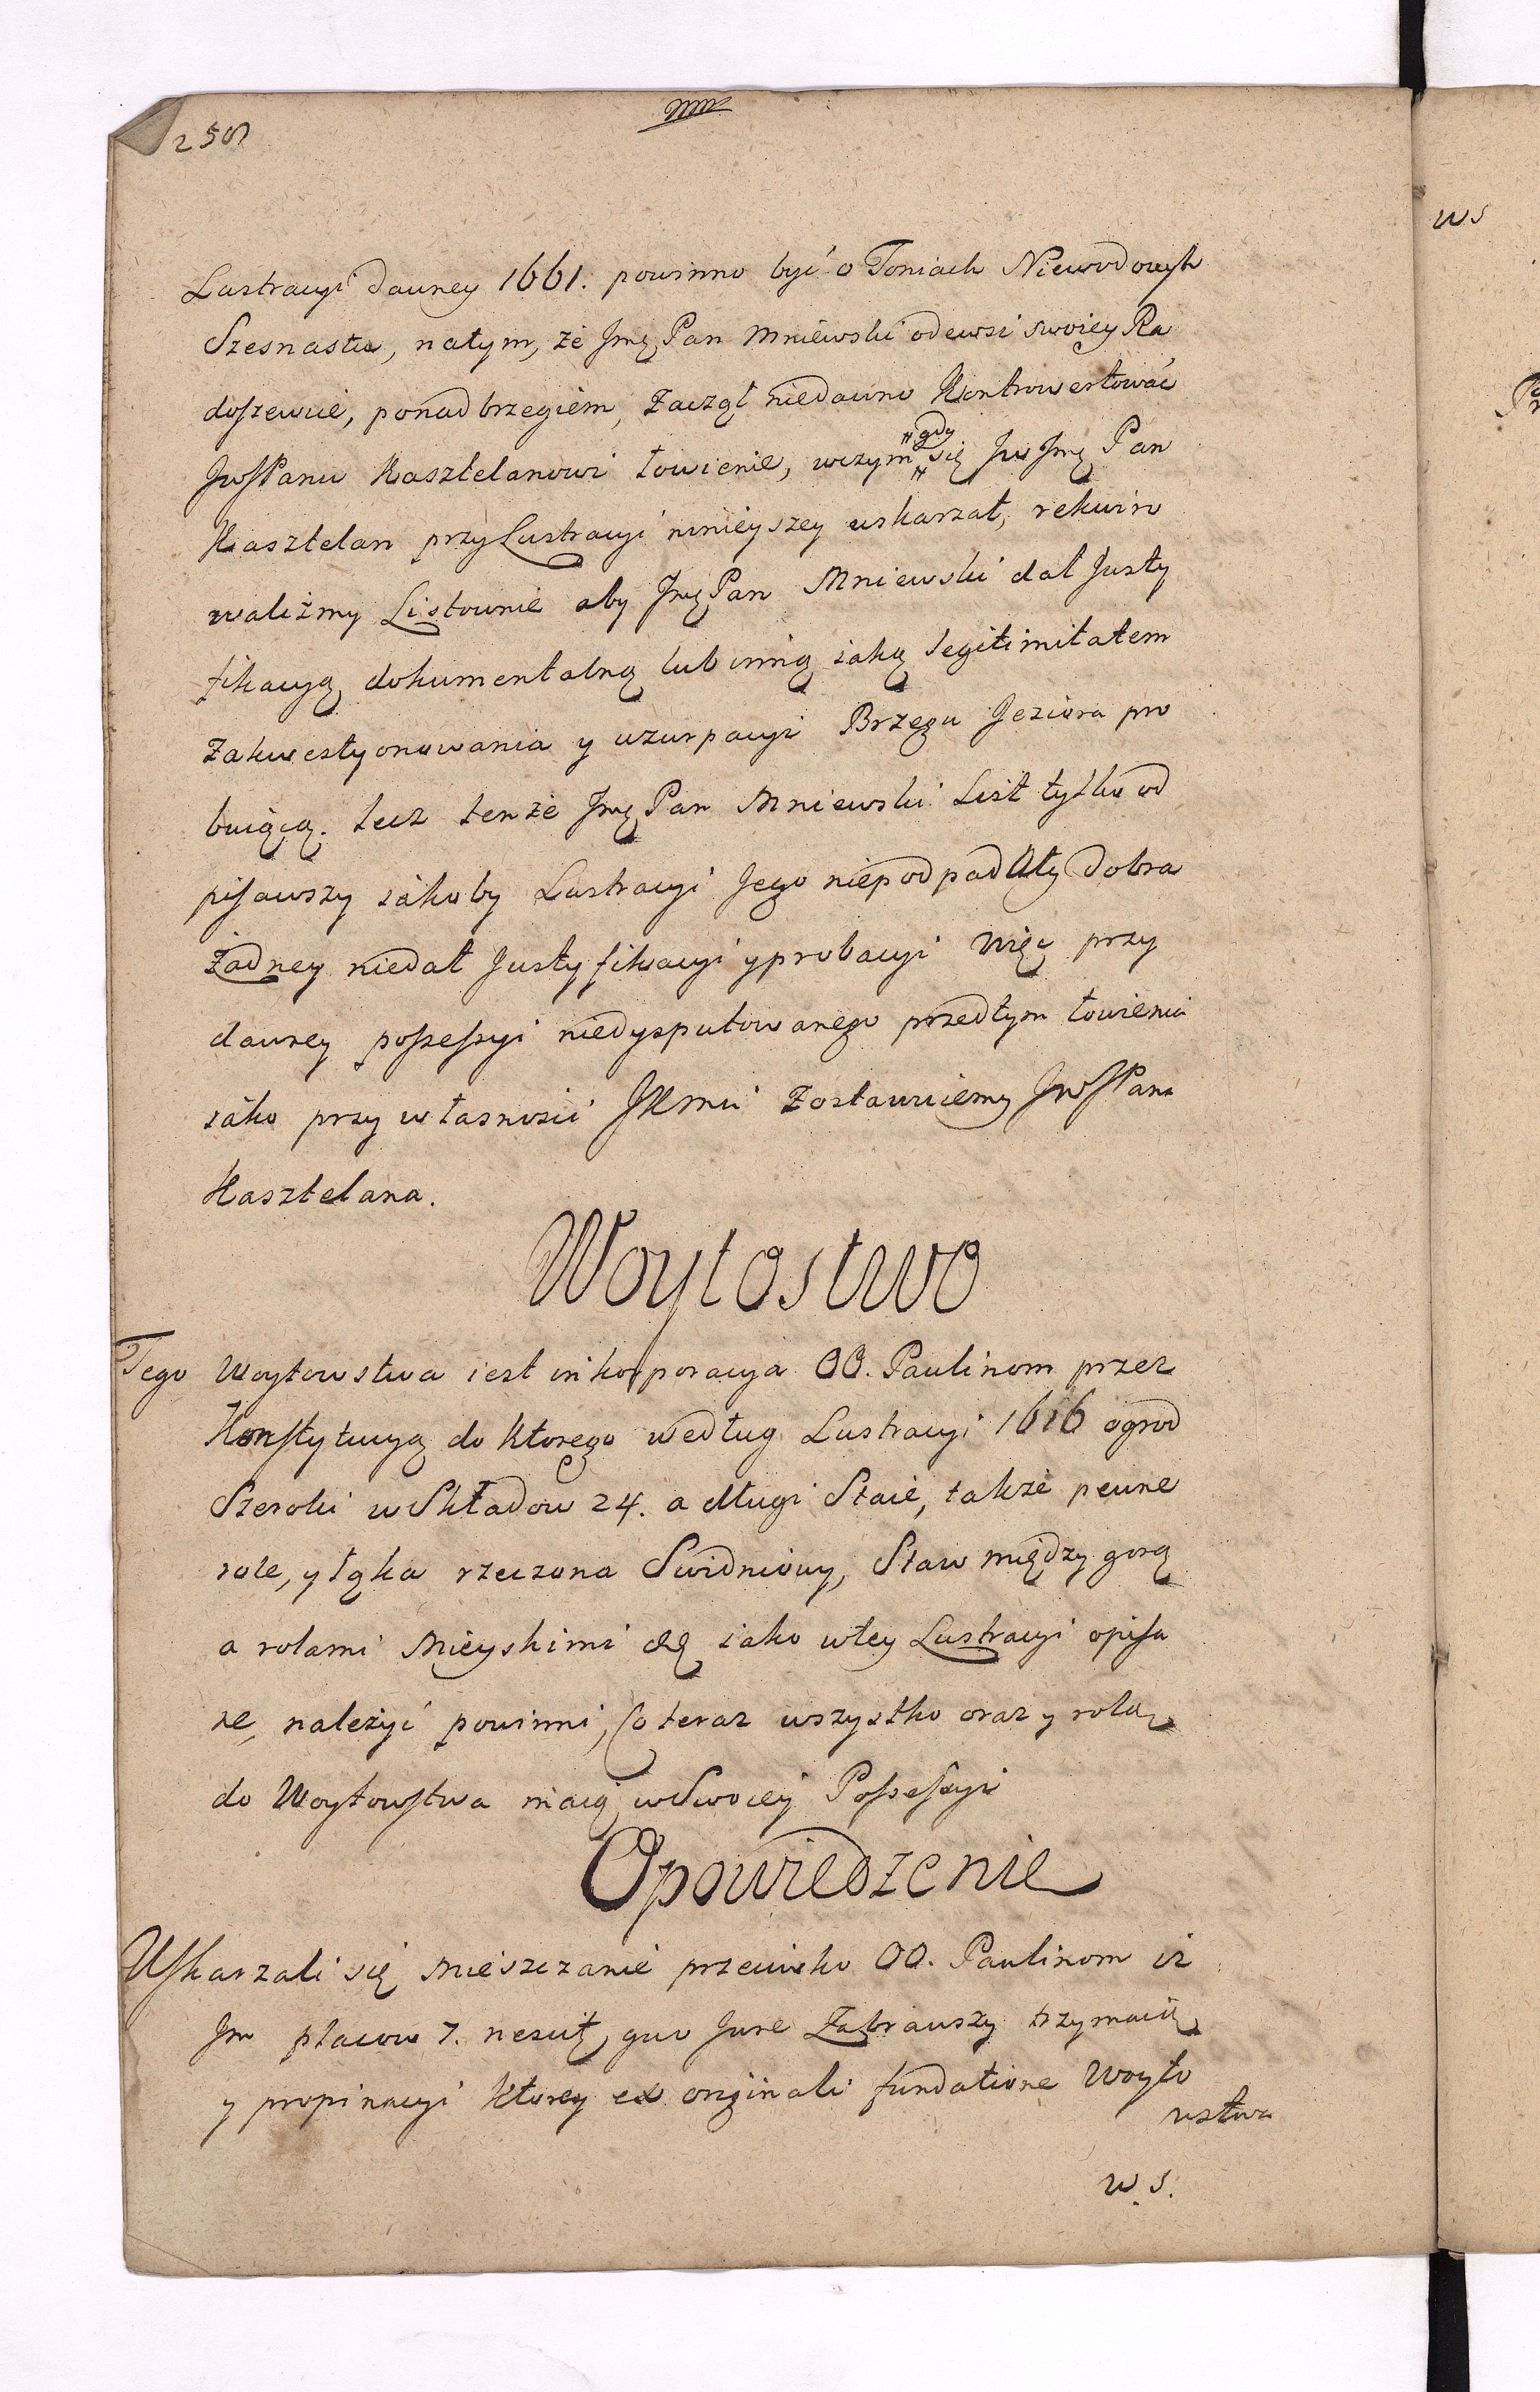 250
Lustracyi dawney 1661. powinno być o Toniach Niewodowych
Szesnastu, natym, że Jmę Pan Mniewski odewsi swoiey Ra
doszewie, ponad brzegiem, Zaczął niedawno Kontrowertować
JwJPanu Kasztelanowi łowienie, wczym gdy się Jw Jmę Pan
Kasztelan przy Lustracyi ninieyszey uskarzał, rekwiro
waliżmy Listownie aby Jmę Pan Mniewski dał Justy
fikacyą dokumentalną lub inną iaką legitimitatem
Zakwestyonowania y uzurpacyi Brzegu Jeziora pro
buiącą. lecz tenże Jmę Pan Mniewski List tylko od
pisawszy iakoby Lustracyi Jego niepodpadały dobra
Żadney niedał Justyfikacyi y probacyi Więc przy
dawney possessyi niedysputowanego przedtym łowienia
iako przy własności JKMci Zostawuiemy JwJPana
Kasztelana.
Woytostwo
Tego Woytowstwa iest inkorporacya OO. Paulinom przez
Konstytucyą do ktorego według Lustracyi 1616 ogrod
Szeroki w Składow 24. a długi Staie, także pewne
role, y łąka rzeczona Swidniowy, Staw między gorą
a rolami Mieyskimi &c iako wtey Lustracyi opisa
ne, należyć powinni, Co teraz wszystko oraz y rolą
do Woytowstwa maią wSwoiey Possessyi
Opowiedzenie
Uskarzali się Mieszczanie przeciwko OO. Paulinom iż
Jm placow 7. nescit, quo Jure Zabrawszy trzymaią
y propinacyi ktorey ex originali fundatione Woyto
wstwa
w. s.
ws